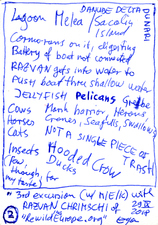 DANUBE DELTA
DUNARI
Lagoon Melea / Sacalin
Island
Cormorans on it, digesting
Battery of boat not connected
RAZVAN gets into water to
push boat thru shallow water
JELLYFISH Pelicans Grebe
Cows Marsh harrier, Herons,
Horses Cranes, Seafulls, Swallows
Cats NOT A SINGLE PIECE OF
TRASH
Insects Hooded Crow
(few Ducks
though, for
my taste)
"3rd excursion (w/ M/E/K) with
RAZVAN CHRIMSCHI of 29
2018
2 "RewildEurope.org"